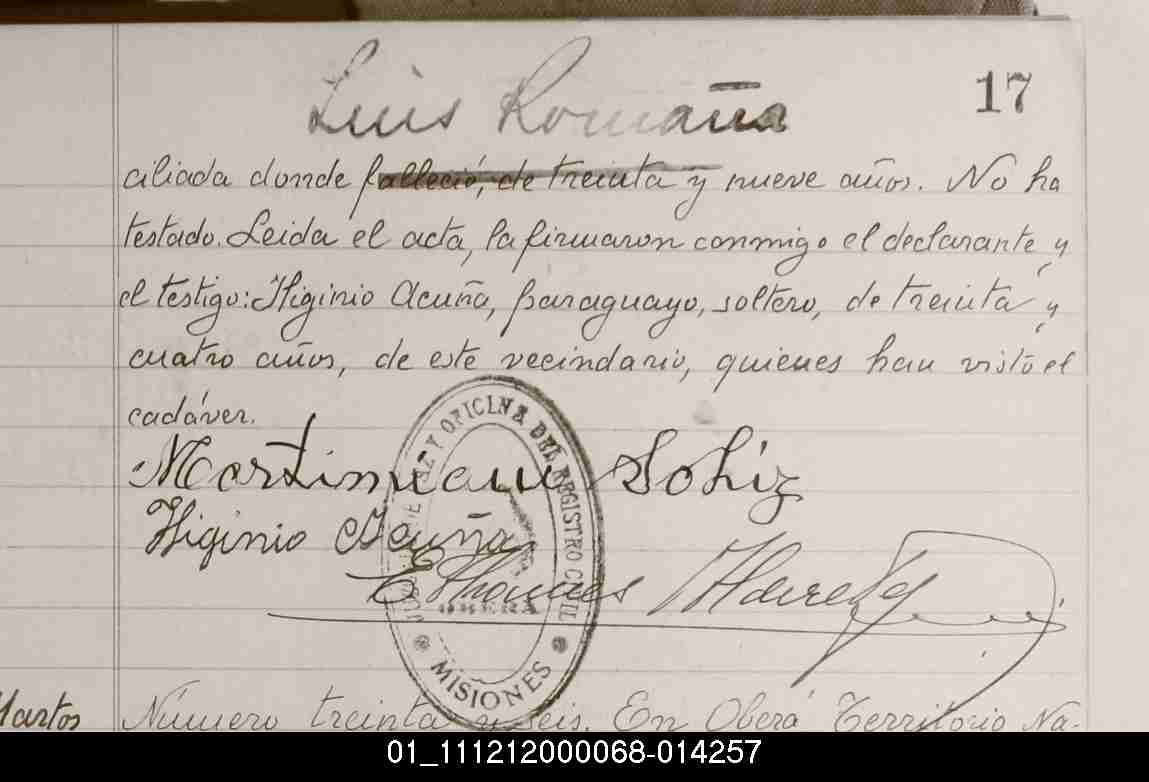 Luis Romaña
17
ciliada donde falleció, de treinta y nueve años. No ha
testado. Leida el acta, la firmaron conmigo el declarante y
el testigo: Higinio Acuña, paraguayo, soltero, de treinta y
cuatro años, de este vecindario, quienes han visto el
cadáver.
Higinio Acuña
Y OFICINA DEL REGISTRO CIVIL
MISIONES
Martos
Número treinta y seis. En Oberá Territorio Na-
01_111212000068-014257